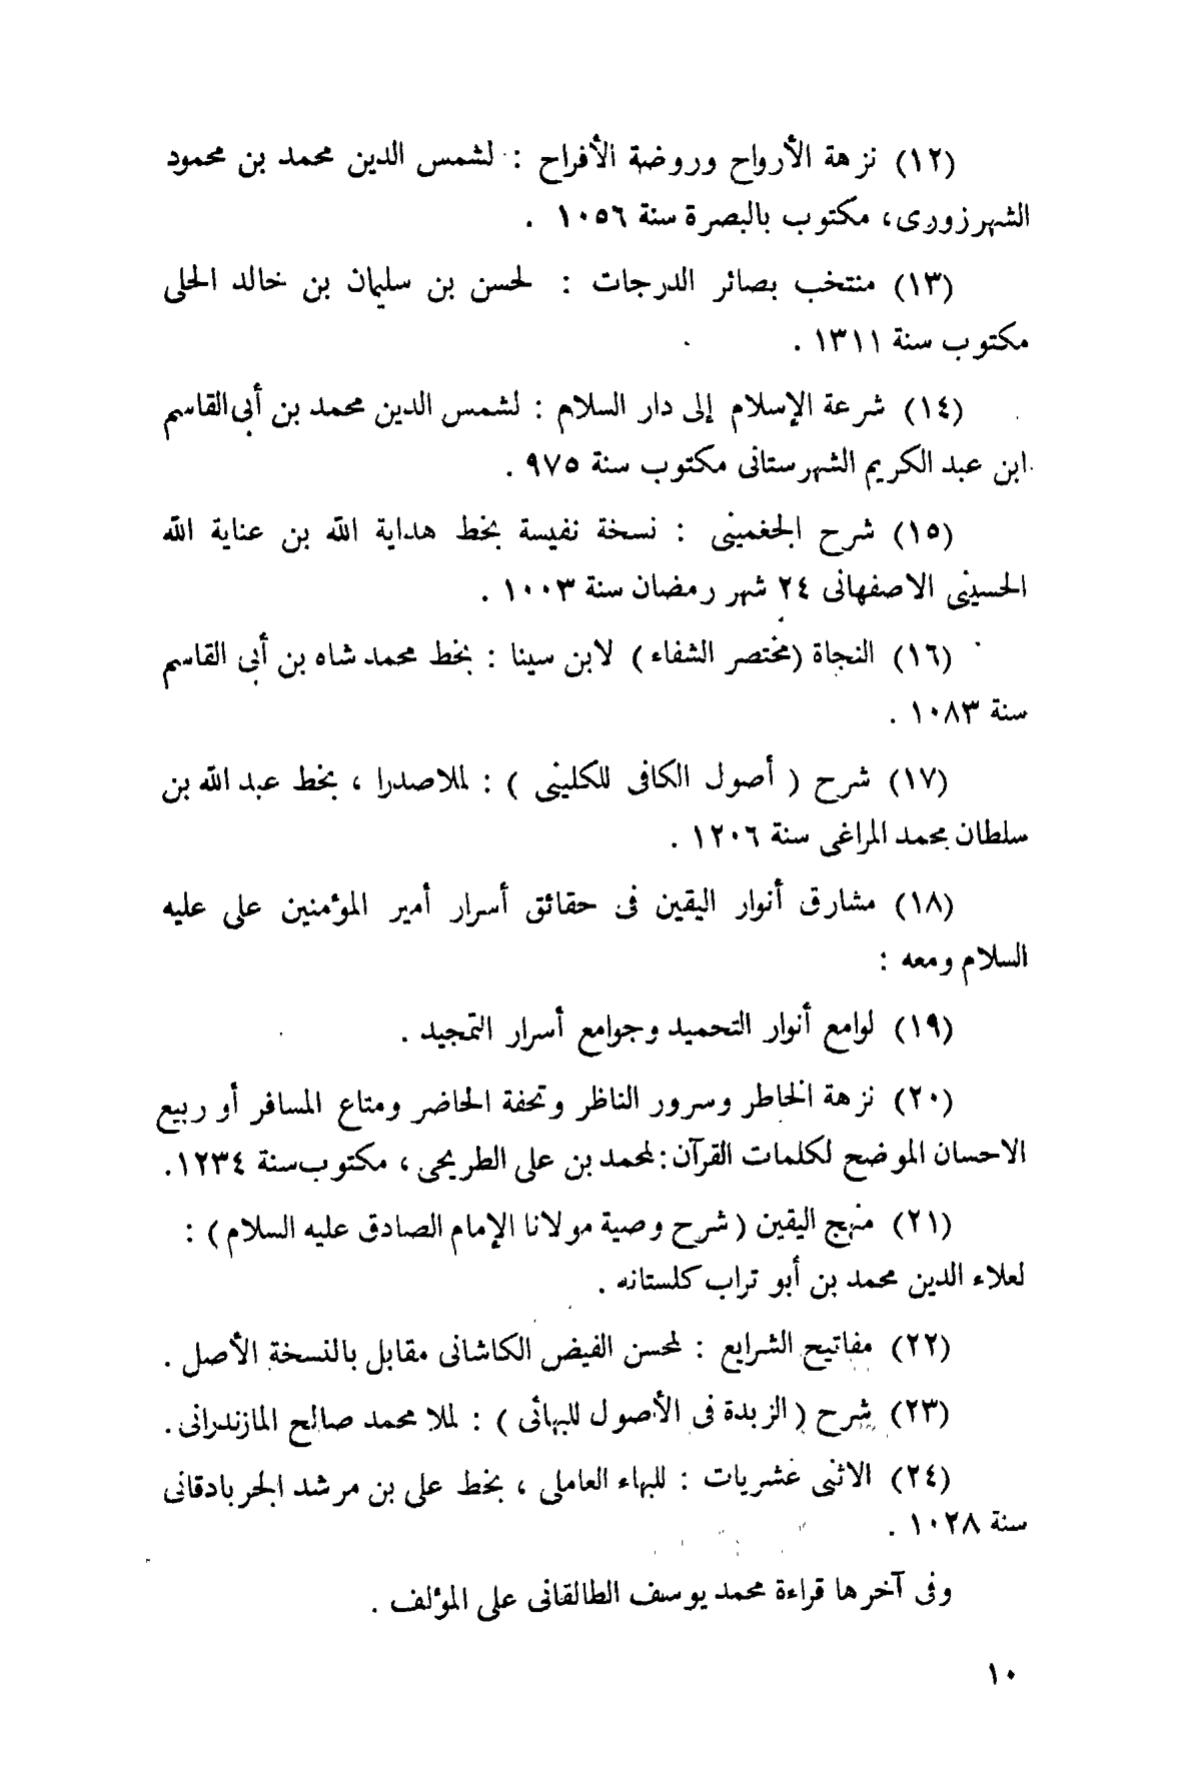 (١٢) نزهة الأرواح وروضة الأفراح : لشمس الدين محمد بن محمود
الشهرزورى، مكتوب بالبصرة سنة ١٠٥٦ .
(١٣) منتخب بصائر الدرجات : لحسن بن سليمان بن خالد الحلى
مكتوب سنة ١٣١١ .
(١٤) شرعة الإسلام إلى دار السلام : لشمس الدين محمد بن أبى القاسم
ابن عبد الكريم الشهرستانى مكتوب سنة ٩٧٥ .
(١٥) شرح الجغمينى : نسخة نفيسة بخط هداية الله بن عناية الله
الحسينى الاصفهانى ٢٤ شهر رمضان سنة ١٠٠٣ .
(١٦) النجاة (مختصر الشفاء) لابن سينا : بخط محمد شاه بن أبى القاسم
سنة ١٠٨٣ .
(١٧) شرح ( أصول الكافى للكلينى ) : لملاصدرا ، بخط عبد الله بن
سلطان محمد المراغى سنة ١٢٠٦ .
(١٨) مشارق أنوار اليقين فى حقائق أسرار أمير المؤمنين على عليه
السلام ومعه :
(١٩) لوامع أنوار التحميد وجوامع أسرار التمجيد .
(٢٠) نزهة الخاطر وسرور الناظر وتحفة الحاضر ومتاع المسافر أو ربيع
الاحسان الموضح لكلمات القرآن : لمحمد بن على الطريحى ، مكتوب سنة ١٢٣٤ .
(٢١) منهج اليقين ( شرح وصية مولانا الإمام الصادق عليه السلام ) :
لعلاء الدين محمد بن أبو تراب كلستانه .
(٢٢) مفاتيح الشرايع : لمحسن الفيض الكاشانى مقابل بالنسخة الأصل .
(٢٣) شرح ( الزبدة فى الأصول للبهائى ) : لملا محمد صالح المازندرانى .
(٢٤) الاثنى عشريات : للبهاء العاملى ، بخط على بن مرشد الجربادقانى
سنة ١٠٢٨ .
وفى آخرها قراءة محمد يوسف الطالقانى على المؤلف .
١٠